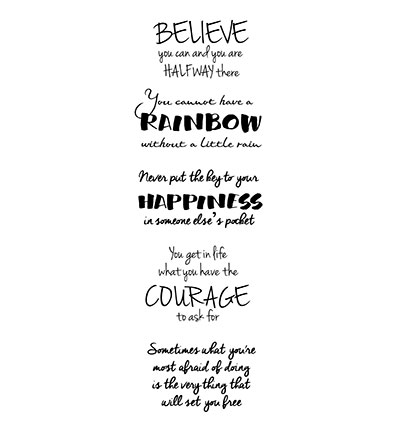 BELIEVE
you can and you are
HALFWAY there
You cannot have a
RAINBOW
without a little rain
Never put the key to your
HAPPINESS
in someone else's pocket
You get in life
what you have the
COURAGE
to ask for
Sometimes what you're
most afraid of doing
is the very thing that
will set you free